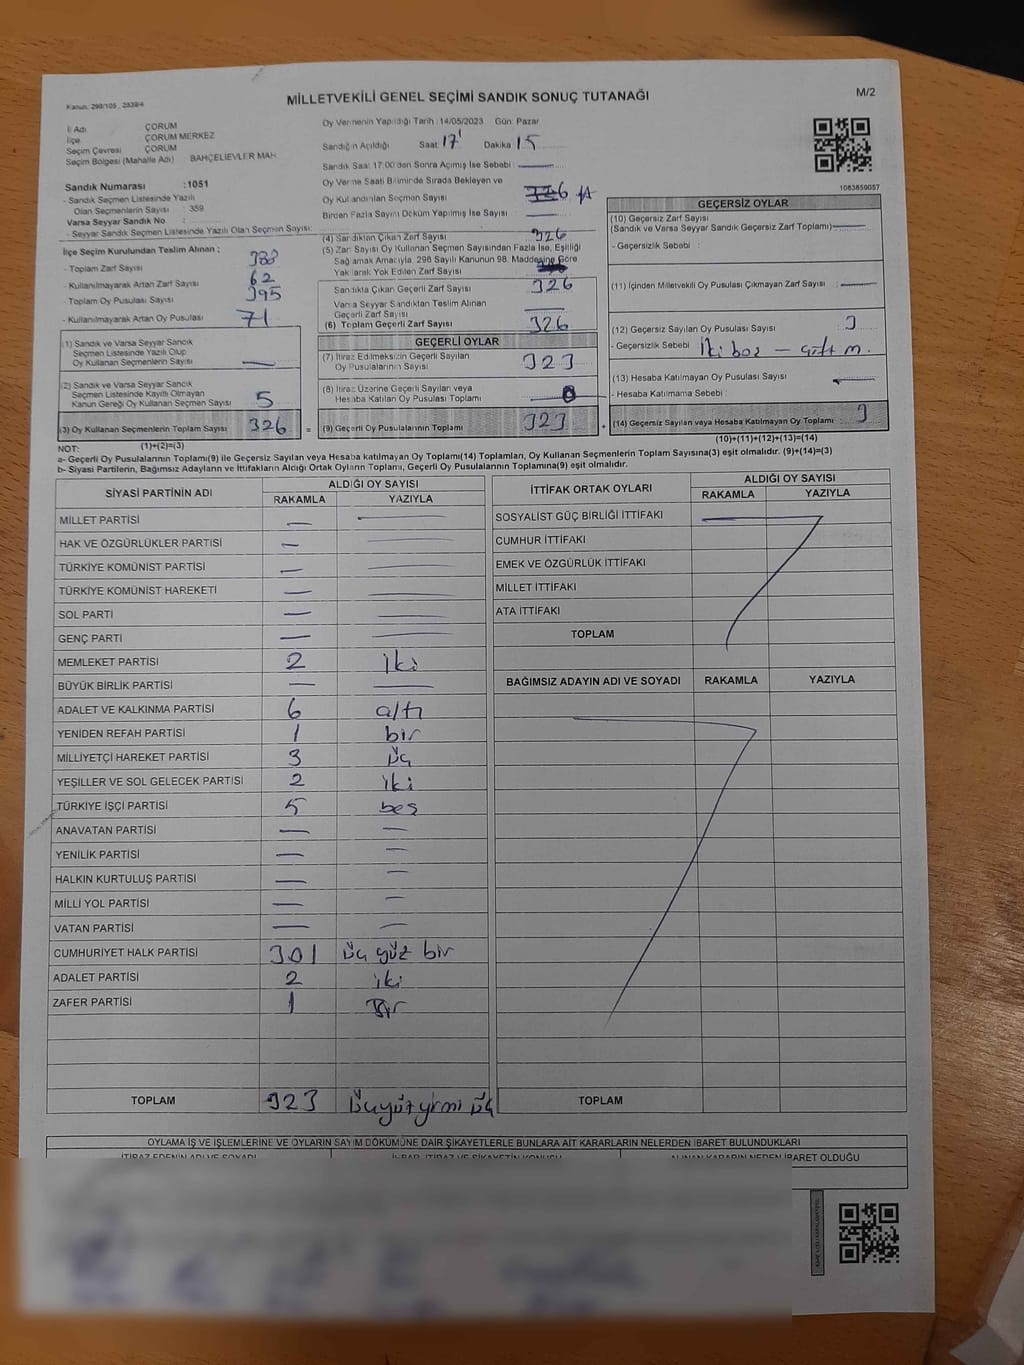 Kanun, 298/105 , 2839/4
MİLLETVEKİLİ GENEL SEÇİMİ SANDIK SONUÇ TUTANAĞI
M/2
İl Adı ÇORUM
İlçe ÇORUM MERKEZ
Seçim Çevresi ÇORUM
Seçim Bölgesi (Mahalle Adı) : BAHÇELİEVLER MAH
Sandık Numarası :1051
- Sandık Seçmen Listesinde Yazılı
Olan Seçmenlerin Sayısı : 359
Varsa Seyyar Sandık No :
- Seyyar Sandık Seçmen Listesinde Yazılı Olan Seçmen Sayısı:
Oy Vermenin Yapıldığı Tarih :14/05/2023 Gün: Pazar
Sandığın Açıldığı Saat: 17 Dakika 15
Sandık Saat 17.00'den Sonra Açılmış İse Sebebi :
Oy Verme Saati Bitiminde Sırada Bekleyen ve
Oy Kullandırılan Seçmen Sayısı
Birden Fazla Sayım Döküm Yapılmış İse Sayısı
1083859057
İlçe Seçim Kurulundan Teslim Alınan ;
- Toplam Zarf Sayısı 388
- Kullanılmayarak Artan Zarf Sayısı 62
- Toplam Oy Pusulası Sayısı 395
- Kullanılmayarak Artan Oy Pusulası 71
(1) Sandık ve Varsa Seyyar Sandık
Seçmen Listesinde Yazılı Olup
Oy Kullanan Seçmenlerin Sayısı —
(2) Sandık ve Varsa Seyyar Sandık
Seçmen Listesinde Kayıtlı Olmayan
Kanun Gereği Oy Kullanan Seçmen Sayısı 5
(3) Oy Kullanan Seçmenlerin Toplam Sayısı 326 =
(1)+(2)=(3)
(4) Sandıktan Çıkan Zarf Sayısı 326
(5) Zarf Sayısı Oy Kullanan Seçmen Sayısından Fazla İse, Eşitliği
Sağlamak Amacıyla, 298 Sayılı Kanunun 98. Maddesine Göre
Yakılarak Yok Edilen Zarf Sayısı
Sandıkta Çıkan Geçerli Zarf Sayısı 326
Varsa Seyyar Sandıktan Teslim Alınan
Geçerli Zarf Sayısı
(6) Toplam Geçerli Zarf Sayısı 326
GEÇERLİ OYLAR
(7) İtiraz Edilmeksizin Geçerli Sayılan
Oy Pusulalarının Sayısı 323
(8) İtiraz Üzerine Geçerli Sayılan veya
Hesaba Katılan Oy Pusulası Toplamı
(9) Geçerli Oy Pusulalarının Toplamı 323 +
GEÇERSİZ OYLAR
(10) Geçersiz Zarf Sayısı
(Sandık ve Varsa Seyyar Sandık Geçersiz Zarf Toplamı)
- Geçersizlik Sebebi :
(11) İçinden Milletvekili Oy Pusulası Çıkmayan Zarf Sayısı :
(12) Geçersiz Sayılan Oy Pusulası Sayısı 3
- Geçersizlik Sebebi : İki boş — çift m.
(13) Hesaba Katılmayan Oy Pusulası Sayısı
- Hesaba Katılmama Sebebi :
(14) Geçersiz Sayılan veya Hesaba Katılmayan Oy Toplamı 3
(10)+(11)+(12)+(13)=(14)
NOT:
a- Geçerli Oy Pusulalarının Toplamı(9) ile Geçersiz Sayılan veya Hesaba katılmayan Oy Toplamı(14) Toplamları, Oy Kullanan Seçmenlerin Toplam Sayısına(3) eşit olmalıdır. (9)+(14)=(3)
b- Siyasi Partilerin, Bağımsız Adayların ve İttifakların Aldığı Ortak Oyların Toplamı, Geçerli Oy Pusulalarının Toplamına(9) eşit olmalıdır.
SİYASİ PARTİNİN ADI ALDIĞI OY SAYISI
RAKAMLA YAZIYLA
MİLLET PARTİSİ — —
HAK VE ÖZGÜRLÜKLER PARTİSİ — —
TÜRKİYE KOMÜNİST PARTİSİ — —
TÜRKİYE KOMÜNİST HAREKETİ — —
SOL PARTİ — —
GENÇ PARTİ — —
MEMLEKET PARTİSİ 2 iki
BÜYÜK BİRLİK PARTİSİ — —
ADALET VE KALKINMA PARTİSİ 6 altı
YENİDEN REFAH PARTİSİ 1 bir
MİLLİYETÇİ HAREKET PARTİSİ 3 üç
YEŞİLLER VE SOL GELECEK PARTİSİ 2 iki
TÜRKİYE İŞÇİ PARTİSİ 5 beş
ANAVATAN PARTİSİ — —
YENİLİK PARTİSİ — —
HALKIN KURTULUŞ PARTİSİ — —
MİLLİ YOL PARTİSİ — —
VATAN PARTİSİ — —
CUMHURİYET HALK PARTİSİ 301 üç yüz bir
ADALET PARTİSİ 2 iki
ZAFER PARTİSİ 1 Bir
TOPLAM 323 üçyüz yirmi üç
İTTİFAK ORTAK OYLARI ALDIĞI OY SAYISI
RAKAMLA YAZIYLA
SOSYALİST GÜÇ BİRLİĞİ İTTİFAKI
CUMHUR İTTİFAKI
EMEK VE ÖZGÜRLÜK İTTİFAKI
MİLLET İTTİFAKI
ATA İTTİFAKI
TOPLAM
BAĞIMSIZ ADAYIN ADI VE SOYADI RAKAMLA YAZIYLA
TOPLAM
OYLAMA İŞ VE İŞLEMLERİNE VE OYLARIN SAYIM DÖKÜMÜNE DAİR ŞİKAYETLERLE BUNLARA AİT KARARLARIN NELERDEN İBARET BULUNDUKLARI
İTİRAZ EDENİN ADI VE SOYADI İHBAR, İTİRAZ VE ŞİKAYETİN KONUSU ALINAN KARARIN NEDEN İBARET OLDUĞU